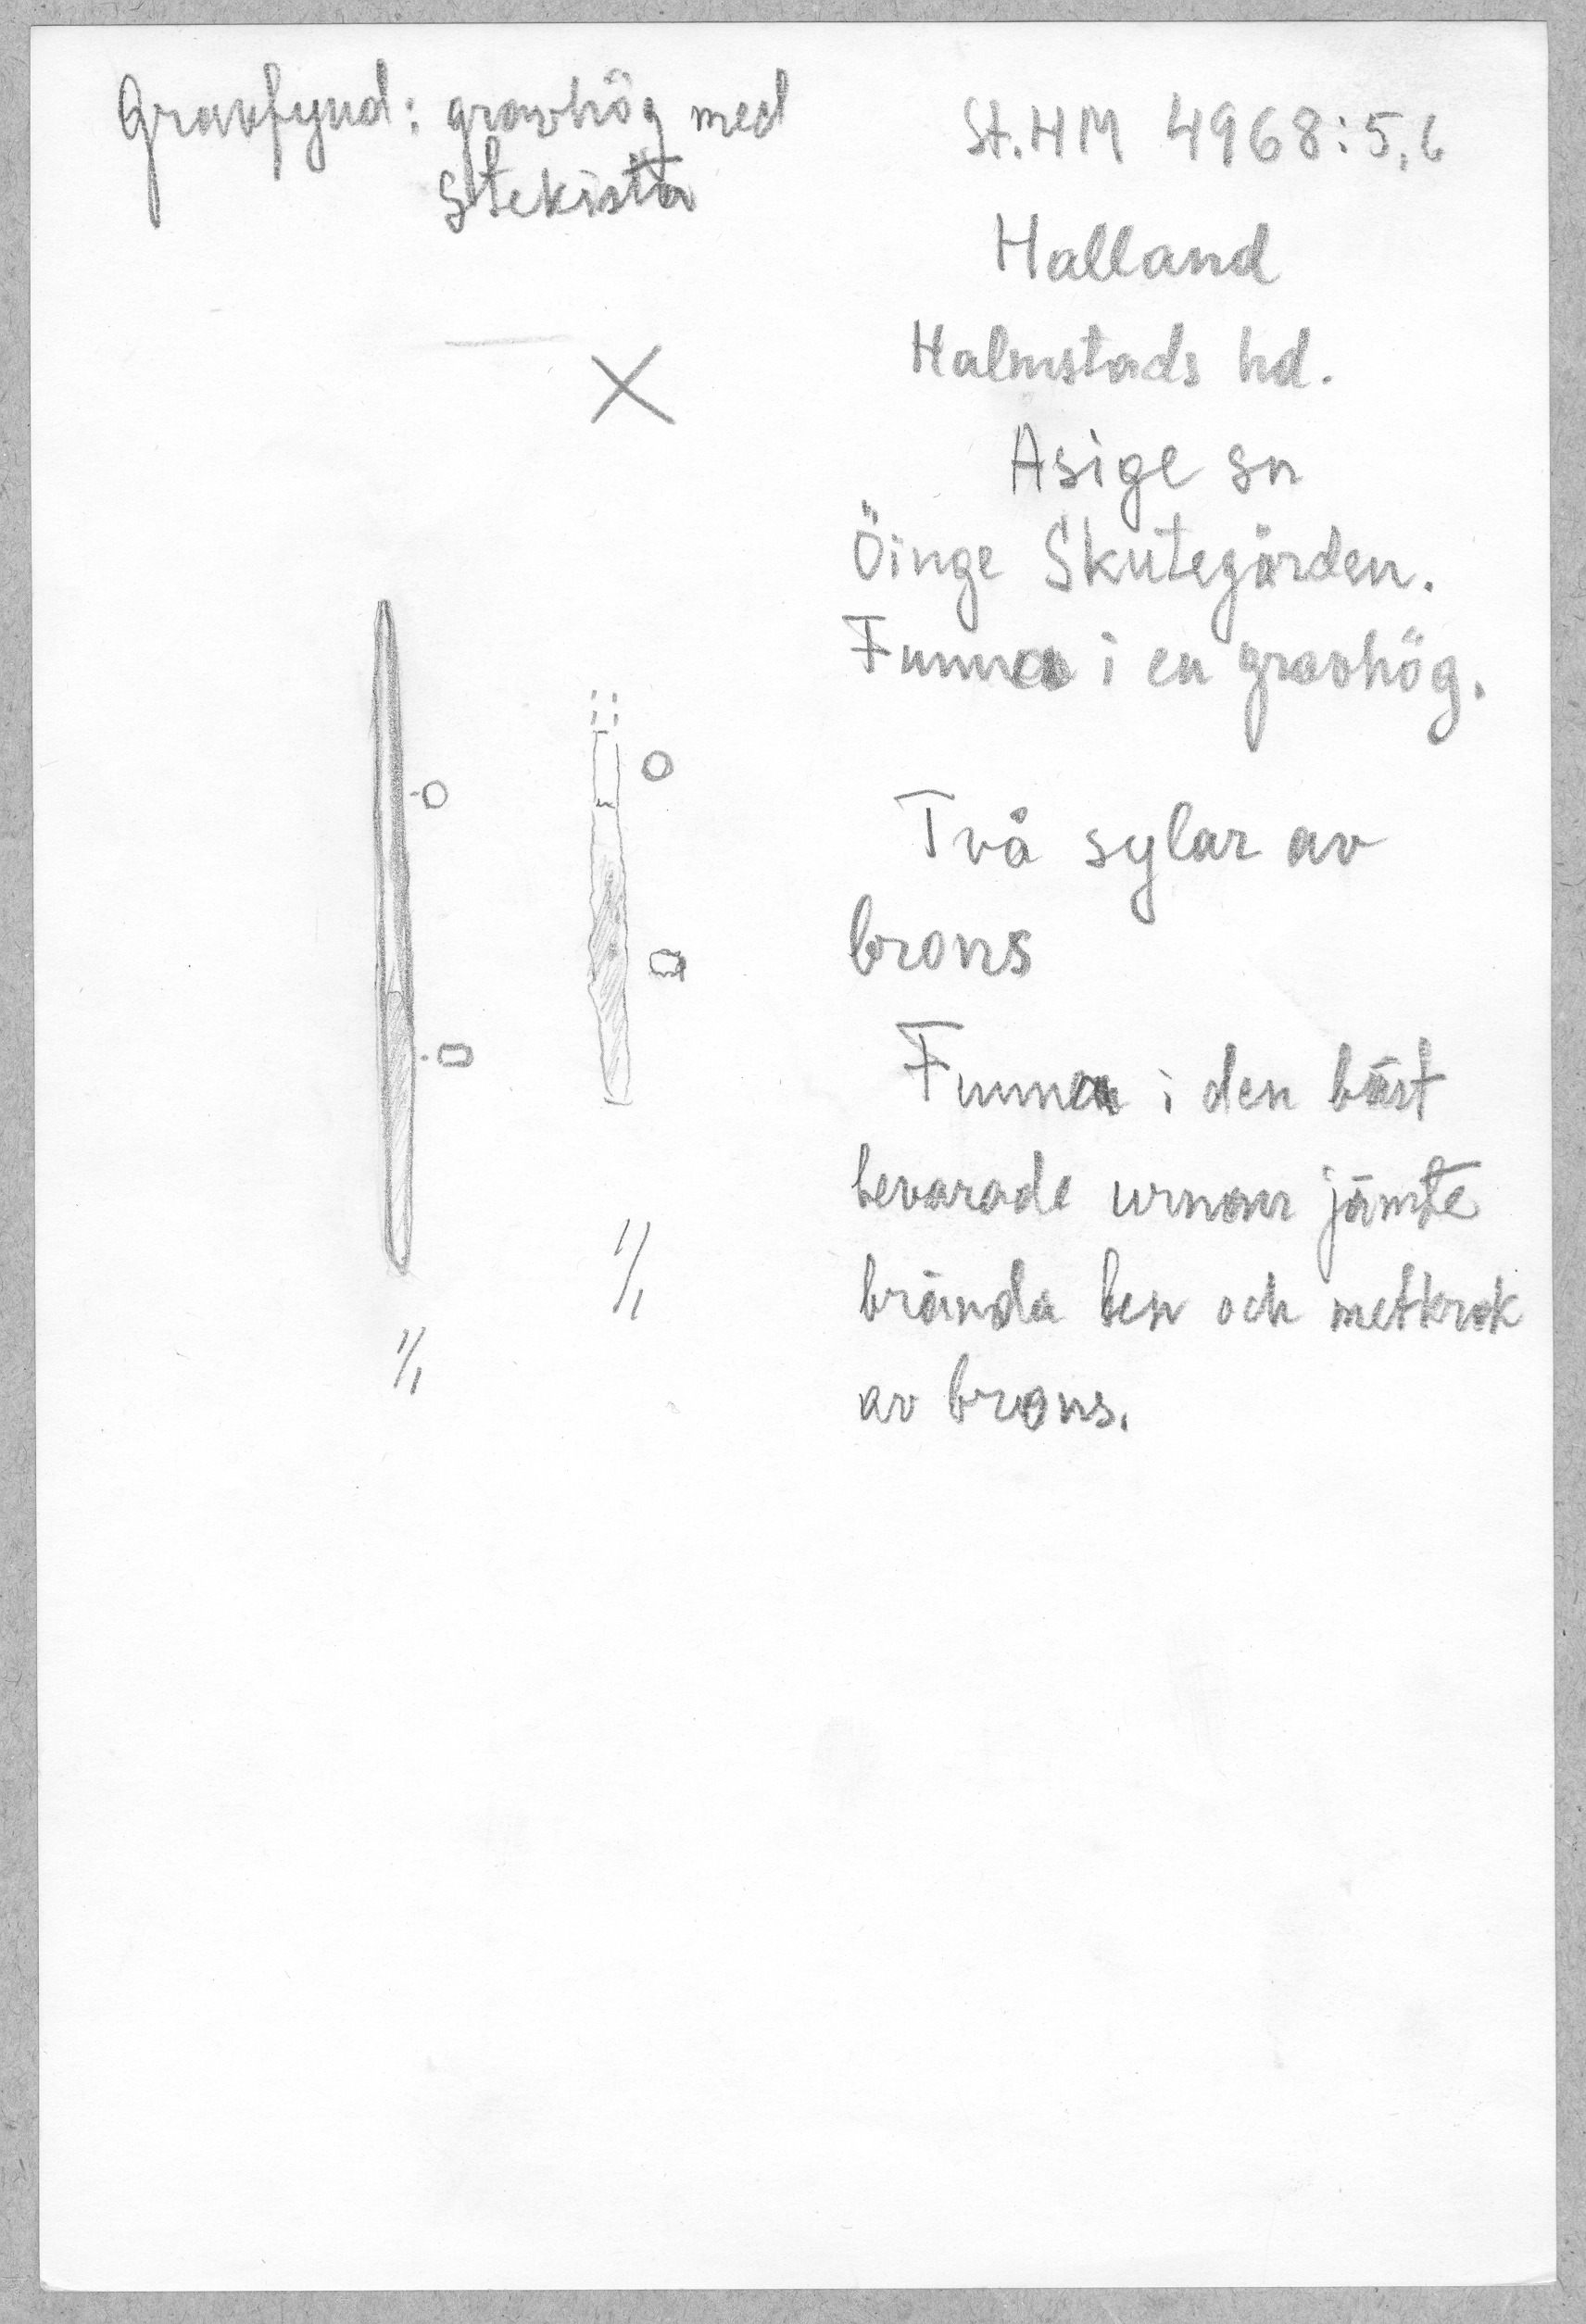 Gravfynd: gravhög med
Stekista
St.HM 4968:5,6
Halland
Halmstads hd.
Asige sn
Öinge Skutegården.
Funna i en gravhög.
Två sylar av
brons
Funna i den bäst
bevarade urnan jämte
brända ben och metkrok
av brons.
1/1
1/1